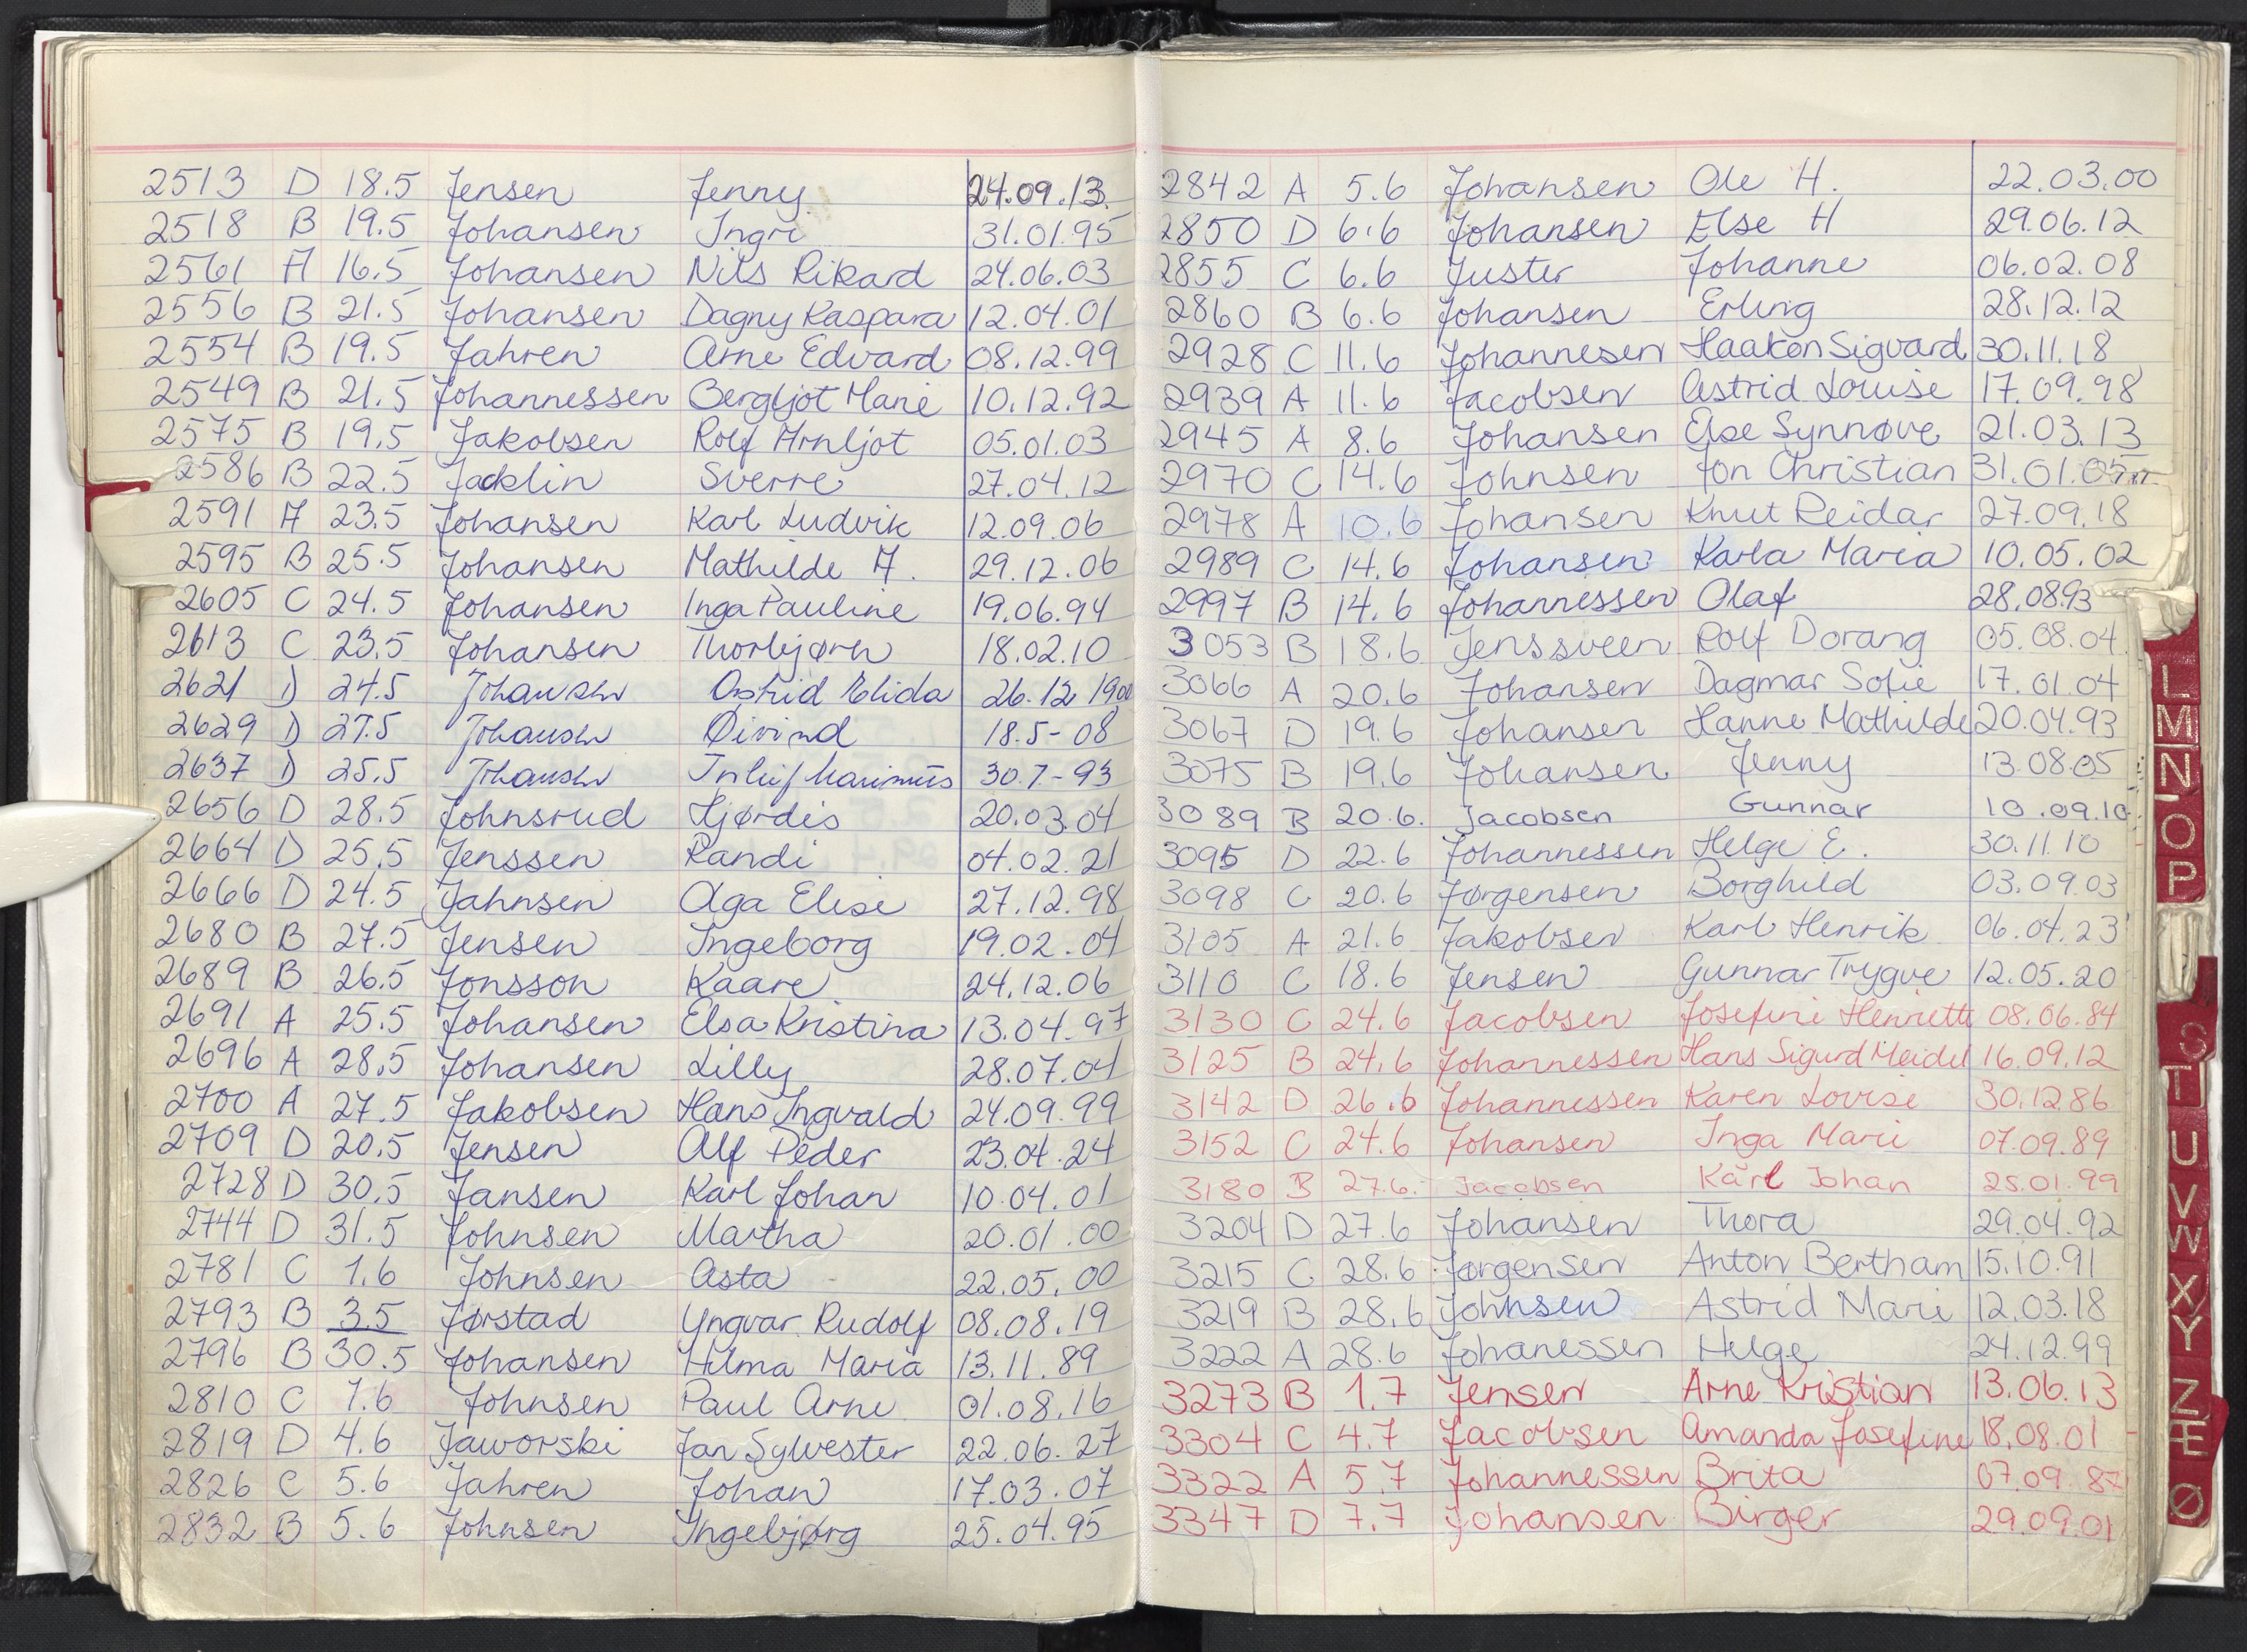 2513 D 18.5 Jensen Jenny 24.09.13.
2518 B 19.5 Johansen Ingri 31.01.95
2561 A 16.5 Johansen Nils Rikard 24.06.03
2556 B 21.5 Johansen Dagny Kaspara 12.04.01
2554 B 19.5 Jahren Arne Edvard 08.12.99
2549 B 21.5 Johannessen Bergljot Marie 10.12.92
2575 B 19.5 Jakobsen Rolf Arnljot 05.01.03
2586 B 22.5 Jacklin Sverre 27.04.12
2591 A 23.5 Johansen Karl Ludvik 12.09.06
2595 B 25.5 Johansen Mathilde A. 29.12.06
2605 C 24.5 Johansen Inga Pauline 19.06.94
2613 C 23.5 Johansen Thorbjørn 18.02.10
2621 D 24.5 Johansen Astrid Elida 26.12 1900
2629 D 27.5 Johansen Øivind 18.5-08
2637 D 25.5 Johansen 30.7-93
2656 D 28.5 Johnsrud Hjørdis 20.03.04
2664 D 25.5 Jenssen Randi 04.02.21
2666 D 24.5 Jahnsen Aga Elise 27.12.98
2680 B 27.5 Jensen Ingeborg 19.02.04
2689 B 26.5 Jonsson Kaare 24.12.06
2691 A 25.5 Johansen Elsa Kristina 13.04.97
2696 A 28.5 Johansen Lilly 28.07.04
2700 A 27.5 Jakobsen Hans Ingvald 24.09.99
2709 D 20.5 Jensen Alf Peder 23.04.24
2728 D 30.5 Jansen Karl Johan 10.04.01
2744 D 31.5 Johnsen Martha 20.01.00
2781 C 1.6 Johnsen Asta 22.05.00
2793 B 3.5 Jørstad Yngvar Rudolf 08.08.19
2796 B 30.5 Johansen Hilma Maria 13.11.89
2810 C 1.6 Johnsen Paul Arne 01.08.16
2819 D 4.6 Jaworski Jan Sylvester 22.06.27
2826 C 5.6 Jahren Johan 17.03.07
2832 B 5.6 Johnsen Ingebjørg 25.04.95
2842 A 5.6 Johansen Ole H. 22.03.00
2850 D 6.6 Johansen Else H 29.06.12
2855 C 6.6 Juster Johanne 06.02.08
2860 B 6.6 Johansen Erling 28.12.12
2928 C 11.6 Johannesen Haakon Sigvard 30.11.18
2939 A 11.6 Jacobsen Astrid Louise 17.09.98
2945 A 8.6 Johansen Else Synnøve 21.03.13
2970 C 14.6 Johnsen Jon Christian 31.01.05
2978 A 10.6 Johansen Knut Reidar 27.09.18
2989 C 14.6 Johansen Karla Maria 10.05.02
2997 B 14.6 Johannessen Olaf 28.08.93
3053 B 18.6 Jenssveen Rolf Dorang 05.08.04
3066 A 20.6 Johansen Dagmar Sofie 17.01.04
3067 D 19.6 Johansen Hanne Mathilde 20.04.93
3075 B 19.6 Johansen Jenny 13.08.05
3089 B 20.6. Jacobsen Gunnar 10.09.10
3095 D 22.6 Johannessen Helge E. 30.11.10
3098 C 20.6 Jørgensen Borghild 03.09.03
3105 A 21.6 Jakobsen Karl Henrik 06.04.23
3110 C 18.6 Jensen Gunnar Trygve 12.05.20
3130 C 24.6 Jacobsen Josefine Henriette 08.06.84
3125 B 24.6 Johannessen Hans Sigurd Meidel 16.09.12
3142 D 26.6 Johannessen Karen Lovise 30.12.86
3152 C 24.6 Johansen Inga Marie 07.09.89
3180 B 27.6. Jacobsen Karl Johan 25.01.99
3204 D 27.6 Johansen Thora 29.04.92
3215 C 28.6 Jørgensen Anton Bertham 15.10.91
3219 B 28.6 Johnsen Astrid Mari 12.03.18
3222 A 28.6 Johanessen Helge 24.12.99
3273 B 1.7 Jensen Arne Kristian 13.06.13
3304 C 4.7 Jacobsen Amanda Josefine 18.08.01
3322 A 5.7 Johannessen Brita 07.09.87
3347 D 7.7 Johansen Birger 29.09.01
L
M
N
O
P
S
T
U
V
W
X
Y
Z
Æ
Ø